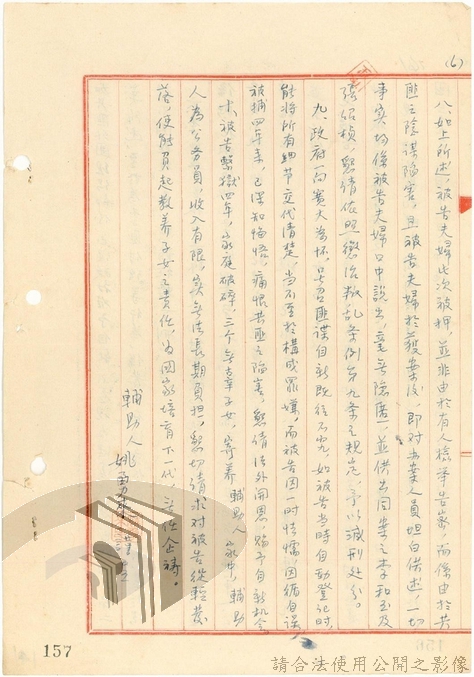 (6)
八、如上所述，被告夫婦此次被押，並非由於有人檢舉告密，而係由於共
匪之陰謀陷害，且被告夫婦於發案後，即對办案人員坦白供述，一切
事实均係被告夫婦口中說出，毫無隱匿，並供出同案之李和玉及
張紹楨，懇請依照懲治叛乱条例第九条之規定，予以減刑处分。
九、政府一向寬大為怀，号召匪諜自新既往不究，如被告当時自動登记時，
能將所有细节交代清楚，当不至於構成罪嫌，而被告因一时怯懦，因循自误，
被捕四年来，已深知悔悟，痛恨共匪之陷害，懇請法外開恩，賜予自新机会
，被告繫獄四年，家庭破碎，三个無辜子女，寄养輔助人家中，輔助
人為公务員，收入有限，实無法長期負担，懇切請求对被告從輕發
落，使能負起教养子女之責任，为国家培育下一代，無任企祷。
輔助人 姚
157
請合法使用公開之影像